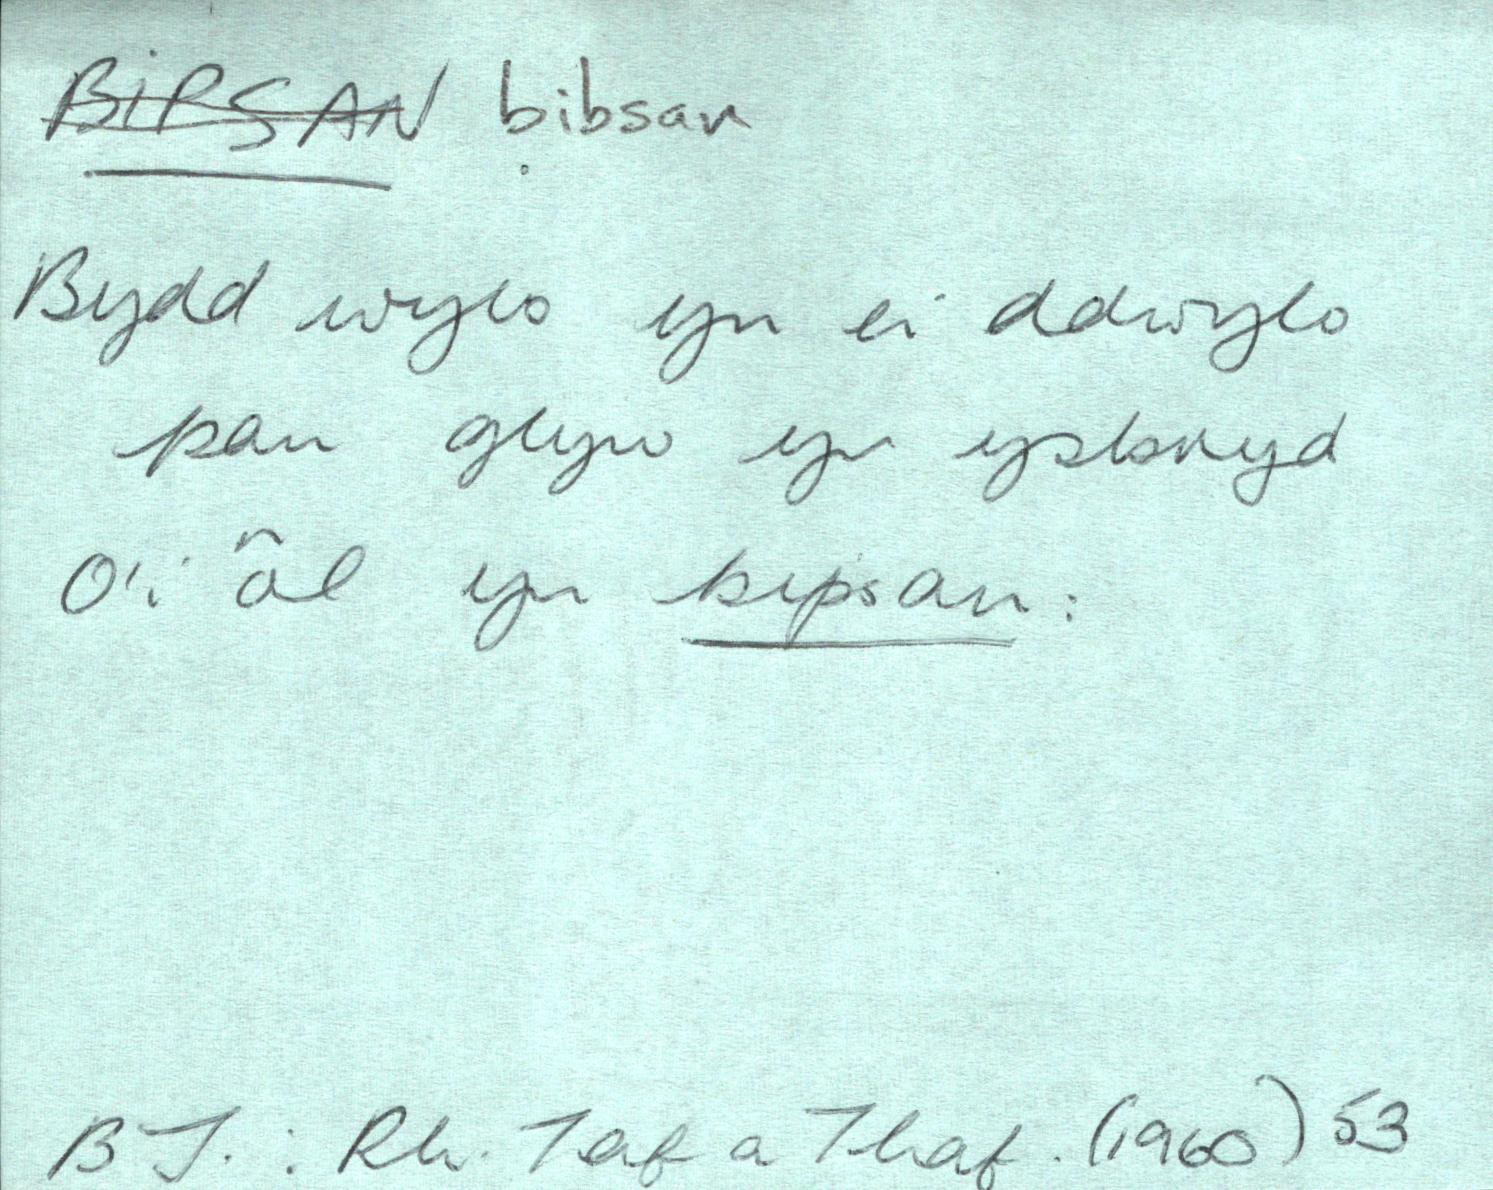 BIPSAN bibsan
Bydd wylo yn ei ddwylo
pan glyw yr ysbryd
O'i ôl yn bipsan:
B J. : Rh. Taf a Thaf. (1960) 53